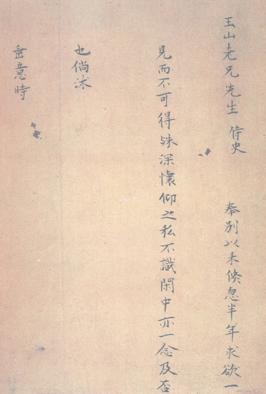 玉山老兄先生 侍史 奉別以来倏忽半年求欲一
見而不可得殊深懷仰之私不識閑中亦一念及否
也倘沐
垂意時